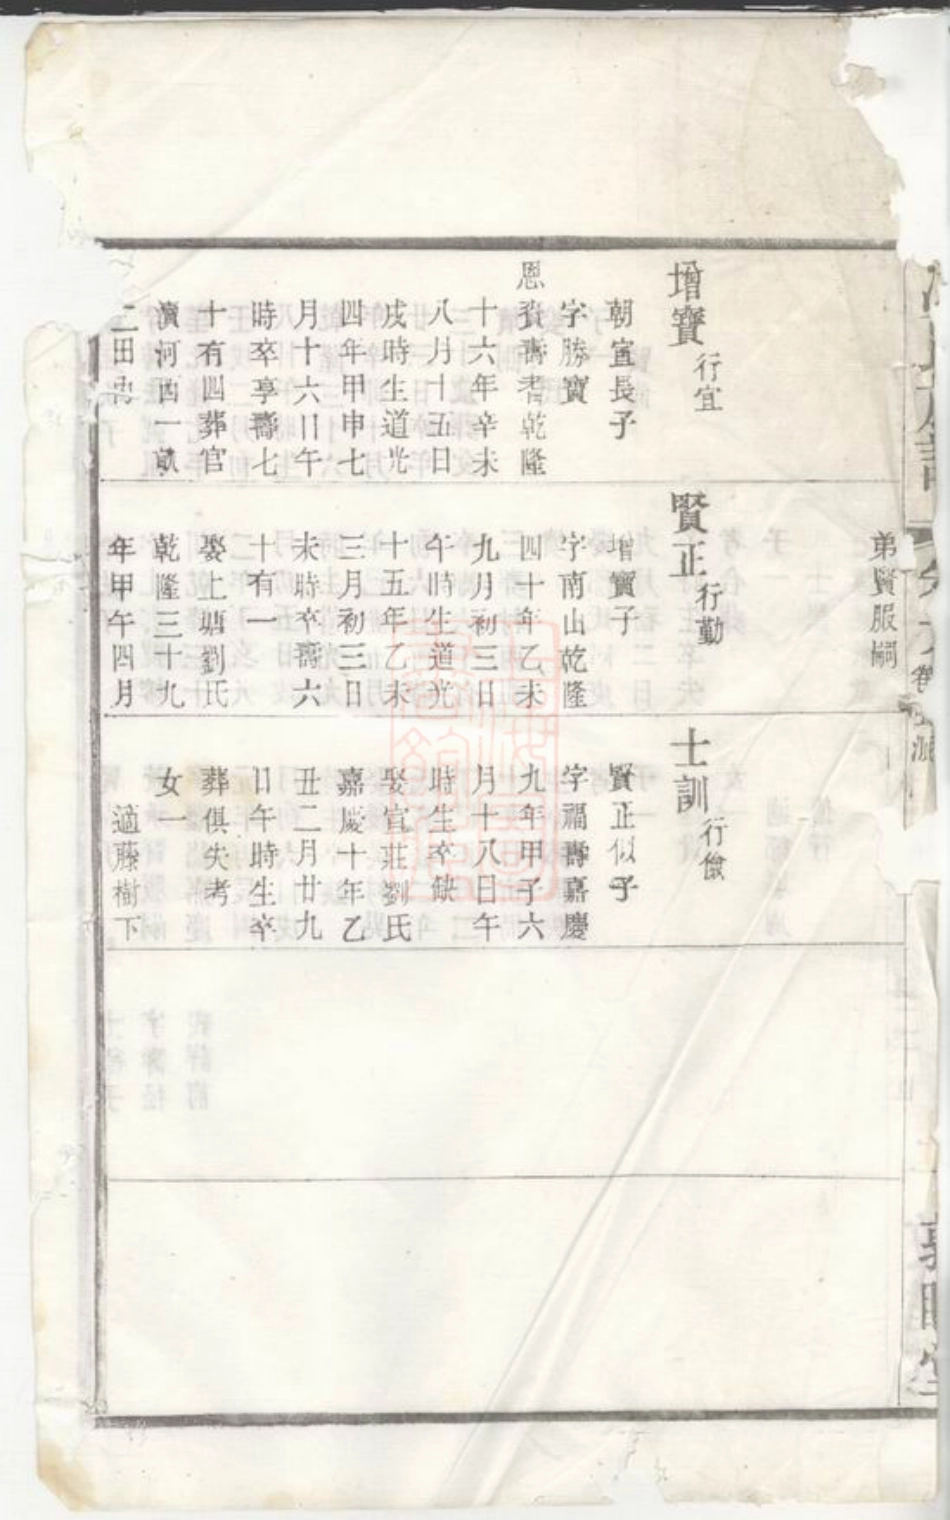 弟賢服嗣
增寶 行宜
朝宣長子
字勝寶
恩賚壽耆乾隆
十六年辛未
八月十五日
戌時生道光
四年甲申七
月十六日午
時卒享壽七
十有四葬官
瀆河西一畝
二田
賢正 行勤
增寶子
字南山乾隆
四十年乙未
九月初三日
午時生道光
十五年乙未
三月初三日
未時卒壽六
十有一
娶上塘劉氏
乾隆三十九
年甲午四月
士訓 行儉
賢正似子
字福壽嘉慶
九年甲子六
月十八日午
時生卒缺
娶官莊劉氏
嘉慶十年乙
丑二月廿九
日午時生卒
葬俱失考
女一
適藤樹下